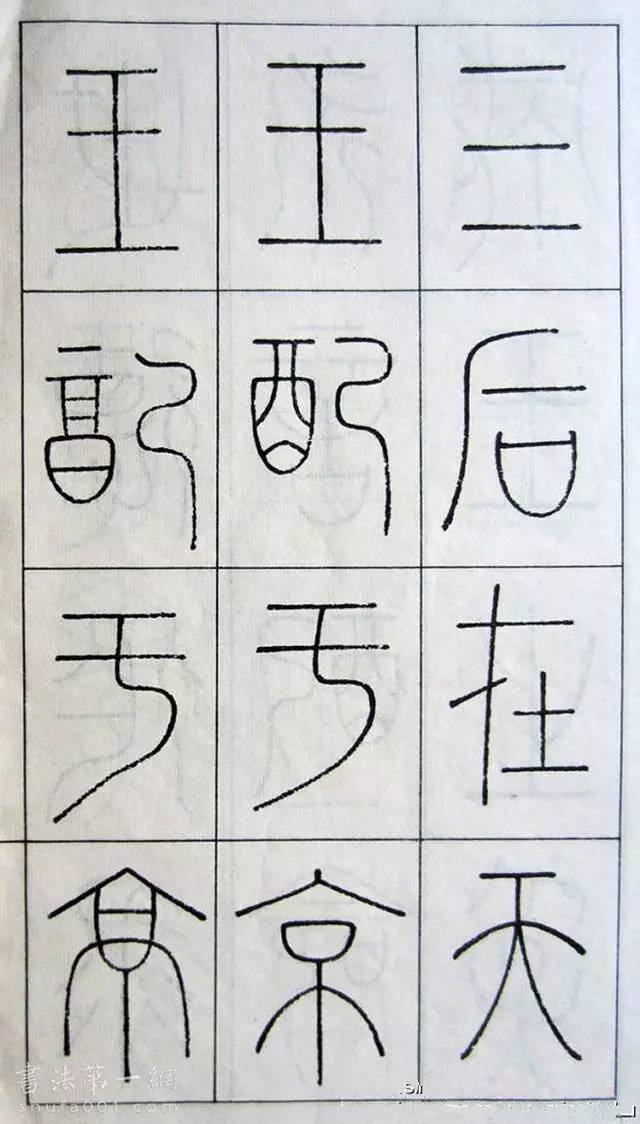 三后在天
王配于京
王配于京
書法第一網
shufa001.com